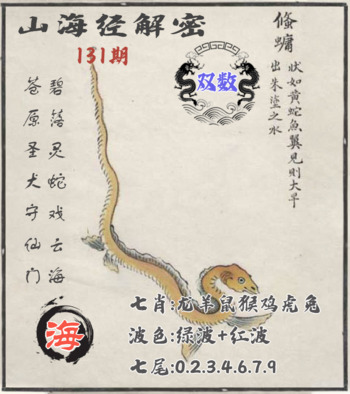 山海经解密
131期
双数
鯈䗤
状如黄蛇鱼翼见则大旱
出朱埊之水
碧落灵蛇戏云海
苍原圣犬守仙门
海
七肖:龙羊鼠猴鸡虎兔
波色:绿波+红波
七尾:0.2.3.4.6.7.9